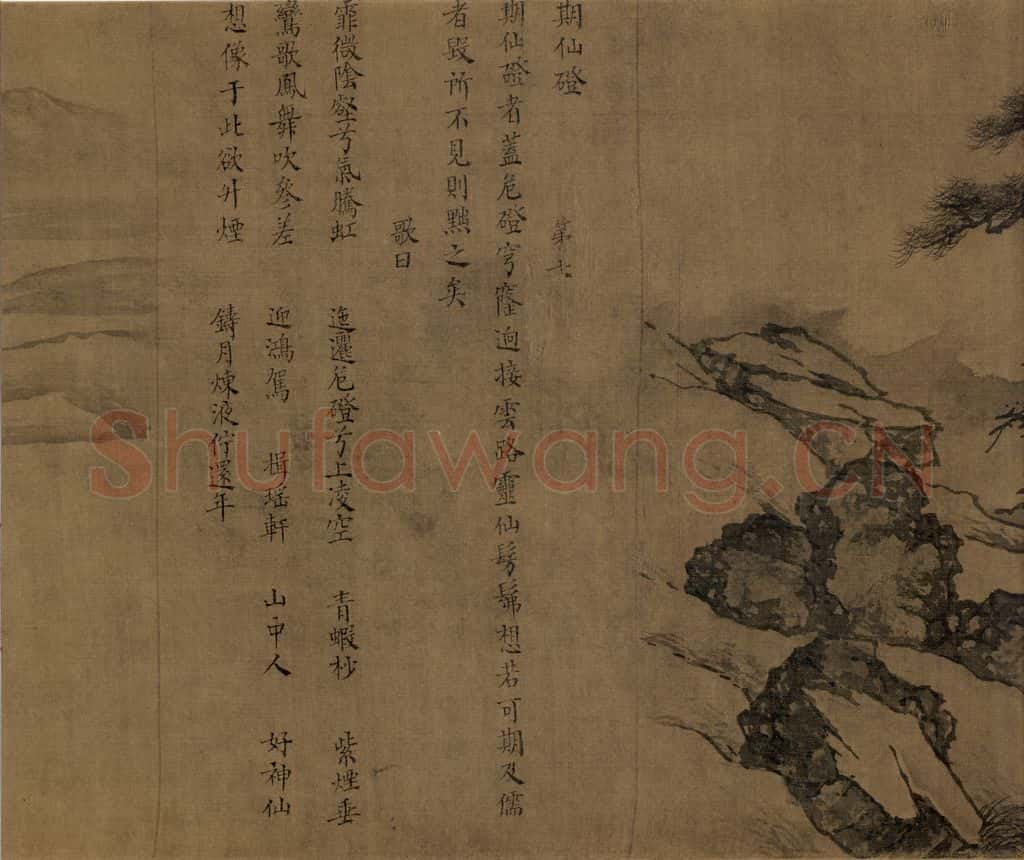 期仙磴
第七
期仙磴者蓋危磴穹隆迥接雲路靈仙髣髴想若可期及儒
者毀所不見則黜之矣
歌曰
霏微陰壑兮氣騰虹 迤邐危磴兮上凌空 青蝦杪 紫煙垂
鸞歌鳳舞吹參差 迎鴻駕 揖瑤軒 山中人 好神仙
想像于此欲升煙 鑄月煉液佇還年
Shufawang.CN